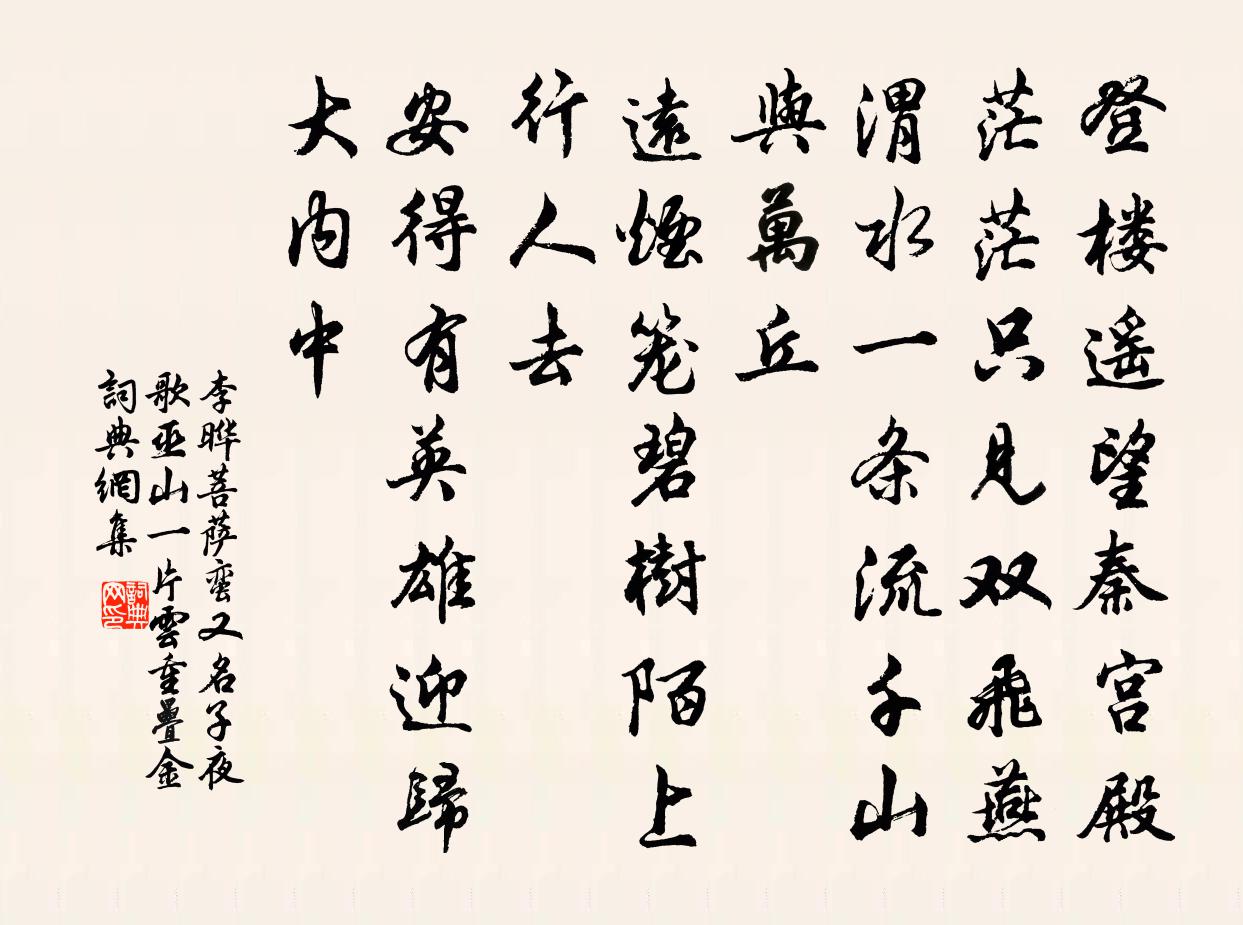 登楼遥望秦宫殿
茫茫只見双飛燕
渭水一条流千山
與萬丘
遠煙笼碧樹陌上
行人去
安得有英雄迎歸
大内中
李晔菩萨蛮又名子夜
歌巫山一片雲重疊金
詞典網集
詞典
网印